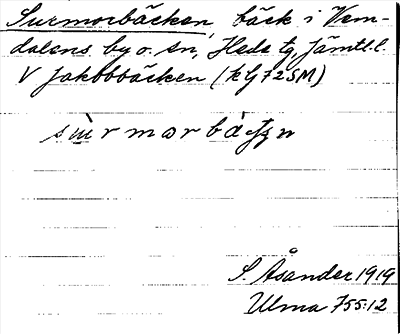 Surmorbäcken, bäck i Vem-
dalens by o. sn, Hede tg, Jämtl. l.
V Jakobbäcken (kG 72SM)
S. Åsander 1919
Ulma 755:12